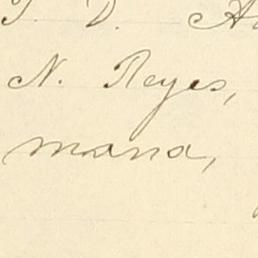 D. A
N. Reyes,
mana,